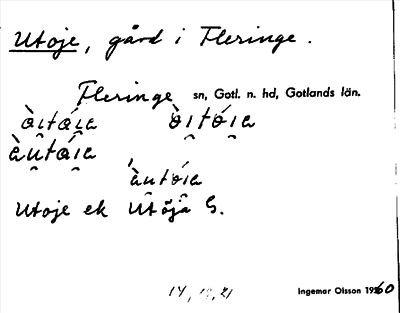 Utoje, gård i Fleringe.
Fleringe sn, Gotl. n. hd, Gotlands län.
òi̯tói̯a òi̯tói̯a
àu̯tái̯a
àu̯tói̯a
Utoje ek Utöja G.
Ingemar Olsson 1960